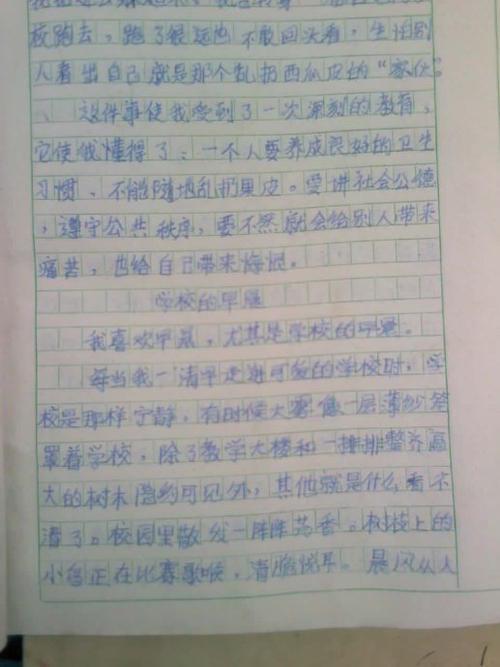 校跑去，跑了很远也不敢回头看，生怕别
人看出自己就是那个乱扔西瓜皮的“家伙”。
这件事使我受到了一次深刻的教育，
它使我懂得了：一个人要养成良好的卫生
习惯、不能随地乱扔果皮。要讲社会公德
，遵守公共秩序，要不然就会给别人带来
痛苦，也给自己带来悔恨。
学校的早晨
我喜欢早晨，尤其是学校的早晨。
每当我一清早走进可爱的学校时，学
校是那样宁静，有时候大雾像一层薄纱笼
罩着学校，除了教学大楼和一排排整齐高
大的树木隐约可见外，其他就是什么看不
清了。校园里散发一阵阵芳香。树枝上的
小鸟正在比赛歌喉，清脆悦耳。晨风从人